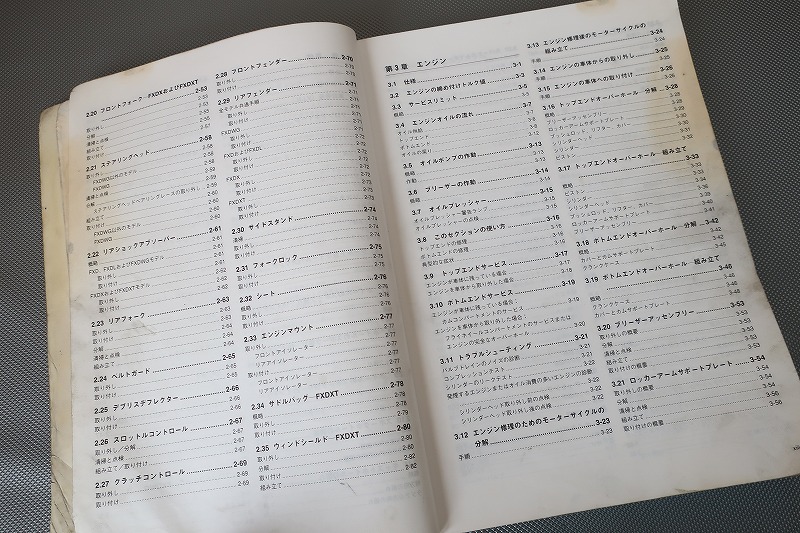 2.20 フロントフォーク—FXDXおよびFXDXT
2-53
取り外し 2-53
分解 2-53
清掃と点検
組み立て
取り付け
2.21 ステアリングヘッド 2-58
取り外し
FXDWG以外のモデル
FXDWG
清掃と点検
分解
ステアリングヘッドベアリングレースの取り外し
組み立て
取り付け
FXDWG以外のモデル
FXDWG
2.22 リアショックアブソーバー 2-61
概略
FXD、FXDLおよびFXDWGモデル
取り外し
取り付け
FXDXおよびFXDXTモデル
取り外し
取り付け
2.23 リアフォーク 2-63
取り外し
分解
清掃と点検
組み立て
2.24 ベルトガード 2-65
取り外し
取り付け
2.25 デブリスデフレクター 2-66
取り外し 2-66
取り付け 2-66
2.26 スロットルコントロール 2-67
取り外し／分解 2-67
清掃と点検 2-67
組み立て／取り付け 2-67
2.27 クラッチコントロール 2-69
取り外し 2-69
取り付け 2-69
2.28 フロントフェンダー 2-70
取り外し 2-70
取り付け 2-70
2.29 リアフェンダー 2-71
全モデル共通手順 2-71
取り外し 2-71
取り付け 2-71
FXDWG
取り外し
取り付け
FXDおよびFXDL
取り外し
取り付け
FXDX
取り外し
取り付け
FXDXT
取り外し
取り付け
2.30 サイドスタンド 2-74
清掃 2-74
取り外し 2-74
取り付け 2-74
2.31 フォークロック 2-75
取り外し 2-75
取り付け 2-75
2.32 シート 2-76
概略 2-76
取り外し 2-76
取り付け 2-76
2.33 エンジンマウント 2-77
取り外し 2-77
フロントアイソレーター 2-77
リアアイソレーター 2-77
取り付け 2-77
フロントアイソレーター 2-77
リアアイソレーター 2-77
2.34 サドルバッグ—FXDXT 2-78
概略 2-78
取り外し 2-78
取り付け 2-79
2.35 ウィンドシールド—FXDXT 2-80
取り外し 2-80
分解 2-80
取り付け 2-82
組み立て 2-82
第3章 エンジン
3.1 仕様 3-1
3.2 エンジンの締め付けトルク値 3-2
3.3 サービスリミット 3-5
概略 3-5
3.4 エンジンオイルの流れ 3-7
オイル供給
トップエンド
ボトムエンド
オイルの戻り 3-12
3.5 オイルポンプの作動 3-13
概略 3-13
作動 3-13
3.6 ブリーザーの作動 3-14
概略 3-14
3.7 オイルプレッシャー 3-15
オイルプレッシャー警告ランプ 3-15
オイルプレッシャーの点検 3-15
3.8 このセクションの使い方 3-16
トップエンドの修理 3-16
ボトムエンドの修理 3-16
典型的な症状 3-16
3.9 トップエンドサービス 3-17
エンジンが車体に残っている場合： 3-17
エンジンを車体から取り外した場合： 3-18
3.10 ボトムエンドサービス 3-19
エンジンが車体に残っている場合：
カムコンパートメントのサービス 3-19
エンジンを車体から取り外した場合：
フライホイールコンパートメントのサービスまたは
エンジンの完全なオーバーホール 3-20
3.11 トラブルシューティング 3-21
バルブトレインのノイズの診断 3-21
コンプレッションテスト 3-21
シリンダーのリークテスト 3-22
発煙するエンジンまたはオイル消費の多いエンジンの診断
3-22
シリンダーヘッド取り外し前の点検 3-22
シリンダーヘッド取り外し後の点検 3-22
3.12 エンジン修理のためのモーターサイクルの
分解 3-23
手順 3-23
3.13 エンジン修理後のモーターサイクルの
組み立て 3-24
手順 3-24
3.14 エンジンの車体からの取り外し 3-25
手順 3-25
3.15 エンジンの車体への取り付け 3-26
手順 3-26
3.16 トップエンドオーバーホール—分解 3-28
概略 3-28
ブリーザーアッセンブリー
ロッカーアームサポートプレート
プッシュロッド、リフター、カバー
シリンダーヘッド
シリンダー
ピストン 3-32
3.17 トップエンドオーバーホール—組み立て
3-33
概略 3-33
ピストン
シリンダー
シリンダーヘッド
プッシュロッド、リフター、カバー
ロッカーアームサポートプレート
ブリーザーアッセンブリー 3-41
3.18 ボトムエンドオーバーホール—分解 3-42
概略 3-42
カバーとカムサポートプレート
クランクケース
3.19 ボトムエンドオーバーホール—組み立て
3-46
概略 3-46
クランクケース
カバーとカムサポートプレート
3.20 ブリーザーアッセンブリー 3-53
取り外しの概要 3-53
分解 3-53
清掃と点検 3-53
組み立て 3-53
取り付けの概要 3-53
3.21 ロッカーアームサポートプレート 3-54
取り外しの概要 3-54
分解 3-54
清掃と点検 3-54
組み立て
取り付けの概要 3-56